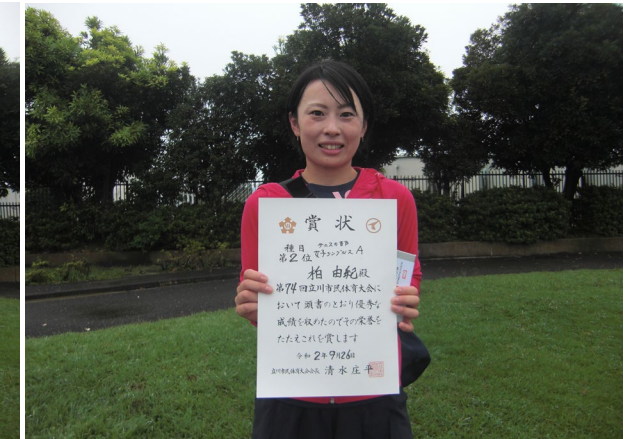 賞状
種目 テニス競技
女子シングルス A
第2位
柏 由紀殿
第74回立川市民体育大会に
おいて頭書のとおり優秀な
成績を収めたのでその栄誉を
たたえこれを賞します
令和2年9月26日
立川市民体育大会会長 清水庄平